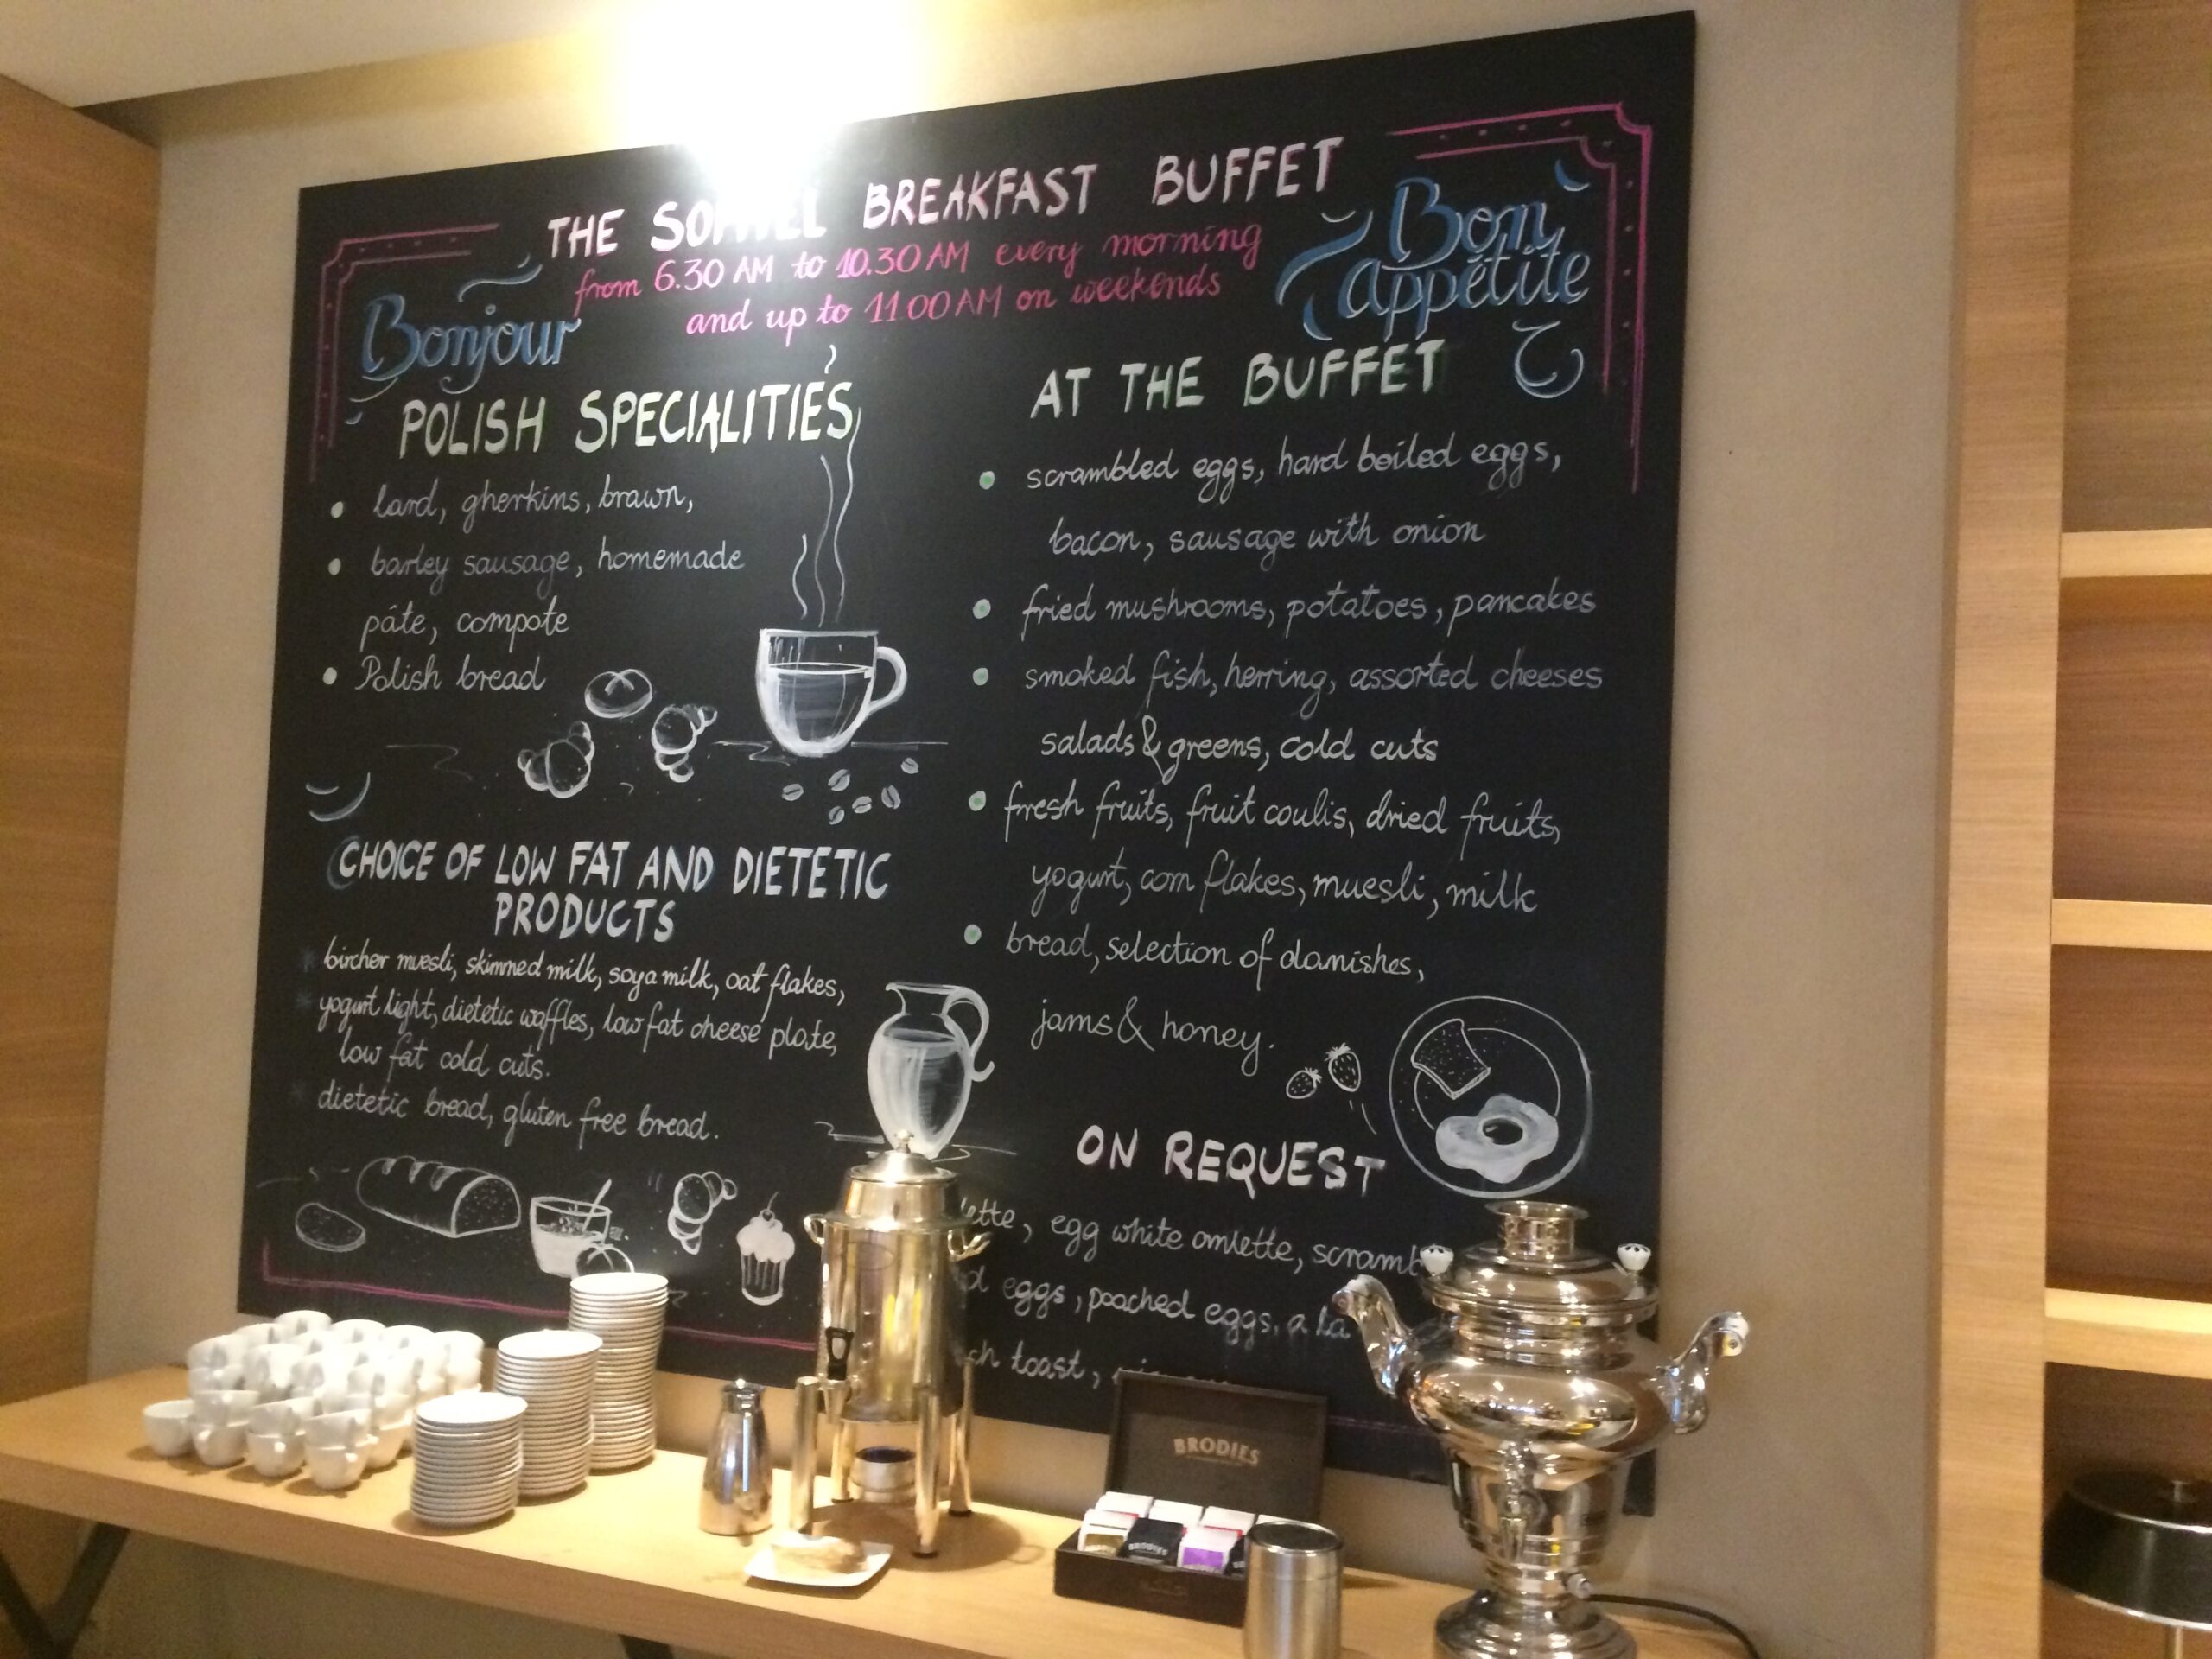 THE SOFITEL BREAKFAST BUFFET
from 6.30 AM to 10.30 AM every morning
and up to 11.00 AM on weekends
Bonjour
Bon
appétite
POLISH SPECIALITIES
lard, gherkins, brawn,
barley sausage, homemade
páte, compote
Polish bread
CHOICE OF LOW FAT AND DIETETIC
PRODUCTS
bircher muesli, skimmed milk, soya milk, oat flakes,
yogurt light, dietetic waffles, low fat cheese plate,
low fat cold cuts.
dietetic bread, gluten free bread.
AT THE BUFFET
scrambled eggs, hard boiled eggs,
bacon, sausage with onion
fried mushrooms, potatoes, pancakes
smoked fish, herring, assorted cheeses
salads & greens, cold cuts
fresh fruits, fruit coulis, dried fruits,
yogurt, corn flakes, muesli, milk
bread, selection of danishes,
jams & honey.
ON REQUEST
lette, egg white omlette, scramb
d eggs, poached eggs, a la
ch toast,
BRODIES
BRODIES